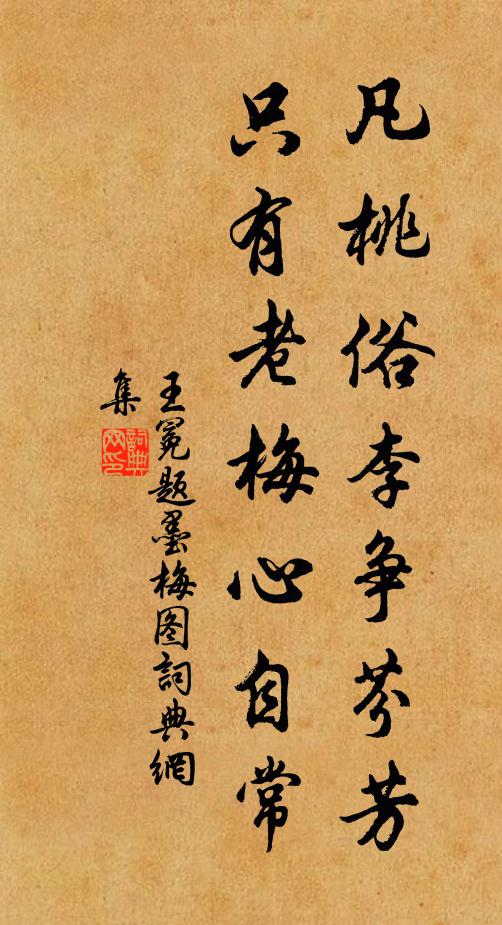 凡桃俗李争芬芳
只有老梅心自常
王冕题墨梅图詞典網
集
詞典网印